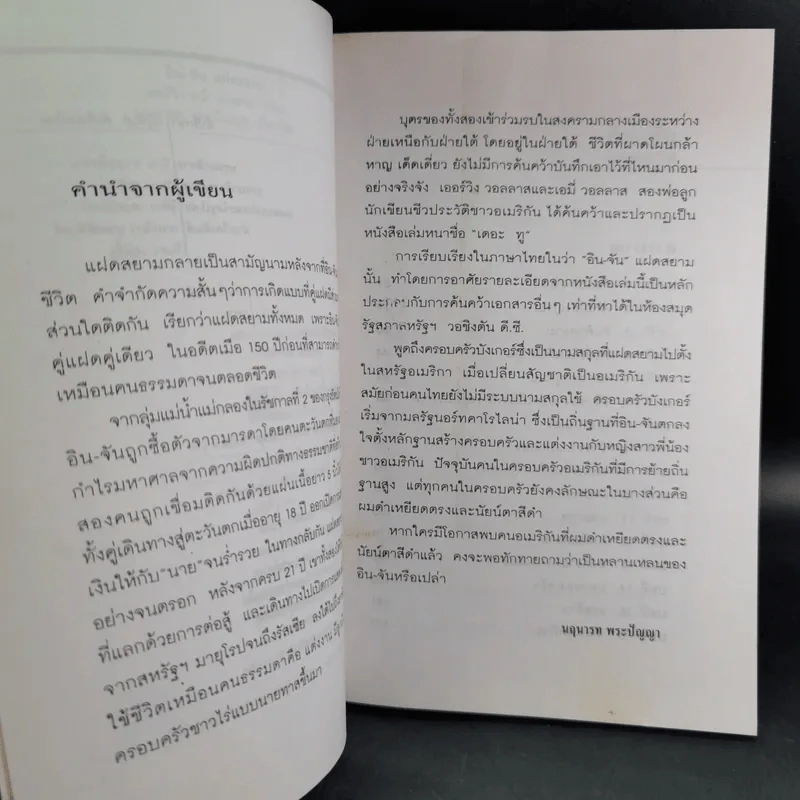 คำนำจากผู้เขียน
แฝดสยามกลายเป็นสามัญนามหลังจากที่อิน-จัน
ชีวิต คำจำกัดความสั้นๆว่าการเกิดแบบที่คู่แฝดมี
ส่วนใดติดกัน เรียกว่าแฝดสยามทั้งหมด เพราะอิน-
คู่แฝดคู่เดียว ในอดีตเมื่อ 150 ปีก่อนที่สามารถ
เหมือนคนธรรมดาจนตลอดชีวิต
จากลุ่มแม่น้ำแม่กลองในรัชกาลที่ 2 ของกรุง
อิน-จันถูกซื้อตัวจากมารดาโดยคนตะวันตก
กำไรมหาศาลจากความผิดปกติทางธรรมชาติ
สองคนถูกเชื่อมติดกันด้วยแผ่นเนื้อยาว 5 นิ้ว
ทั้งคู่เดินทางสู่ตะวันตกเมื่ออายุ 18 ปี ออกเปิดการ
เงินให้กับ"นาย"จนร่ำรวย ในทางกลับกัน
อย่างจนตรอก หลังจากครบ 21 ปี เขาทั้งสอง
ที่แลกด้วยการต่อสู้ และเดินทางไปเปิดการ
จากสหรัฐฯ มายุโรปจนถึงรัสเซีย ลงใต้ไป
ใช้ชีวิตเหมือนคนธรรมดาคือ แต่งงาน
ครอบครัวชาวไร่แบบนายทาสขึ้นมา
บุตรของทั้งสองเข้าร่วมรบในสงครามกลางเมืองระหว่าง
ฝ่ายเหนือกับฝ่ายใต้ โดยอยู่ในฝ่ายใต้ ชีวิตที่ผาดโผนกล้า
หาญ เด็ดเดี่ยว ยังไม่มีการค้นคว้าบันทึกเอาไว้ที่ไหนมาก่อน
อย่างจริงจัง เออร์วิง วอลลาสและเอมี่ วอลลาส สองพ่อลูก
นักเขียนชีวประวัติชาวอเมริกัน ได้ค้นคว้าและปรากฏเป็น
หนังสือเล่มหนาชื่อ "เดอะ ทู"
การเรียบเรียงในภาษาไทยในว่า "อิน-จัน" แฝดสยาม
นั้น ทำโดยการอาศัยรายละเอียดจากหนังสือเล่มนี้เป็นหลัก
ประกอบกับการค้นคว้าเอกสารอื่นๆ เท่าที่หาได้ในห้องสมุด
รัฐสภาสหรัฐฯ วอชิงตัน ดี.ซี.
พูดถึงครอบครัวบังเกอร์ซึ่งเป็นนามสกุลที่แฝดสยามไปตั้ง
ในสหรัฐอเมริกา เมื่อเปลี่ยนสัญชาติเป็นอเมริกัน เพราะ
สมัยก่อนคนไทยยังไม่มีระบบนามสกุลใช้ ครอบครัวบังเกอร์
เริ่มจากมลรัฐนอร์ทคาโรไลน่า ซึ่งเป็นถิ่นฐานที่อิน-จันตกลง
ใจตั้งหลักฐานสร้างครอบครัวและแต่งงานกับหญิงสาวพี่น้อง
ชาวอเมริกัน ปัจจุบันคนในครอบครัวอเมริกันที่มีการย้ายถิ่น
ฐานสูง แต่ทุกคนในครอบครัวยังคงลักษณะในบางส่วนคือ
ผมดำเหยียดตรงและนัยน์ตาสีดำ
หากใครมีโอกาสพบคนอเมริกันที่ผมดำเหยียดตรงและ
นัยน์ตาสีดำแล้ว คงจะพอทักทายถามว่าเป็นหลานเหลนของ
อิน-จันหรือเปล่า
นฤนารท พระปัญญา